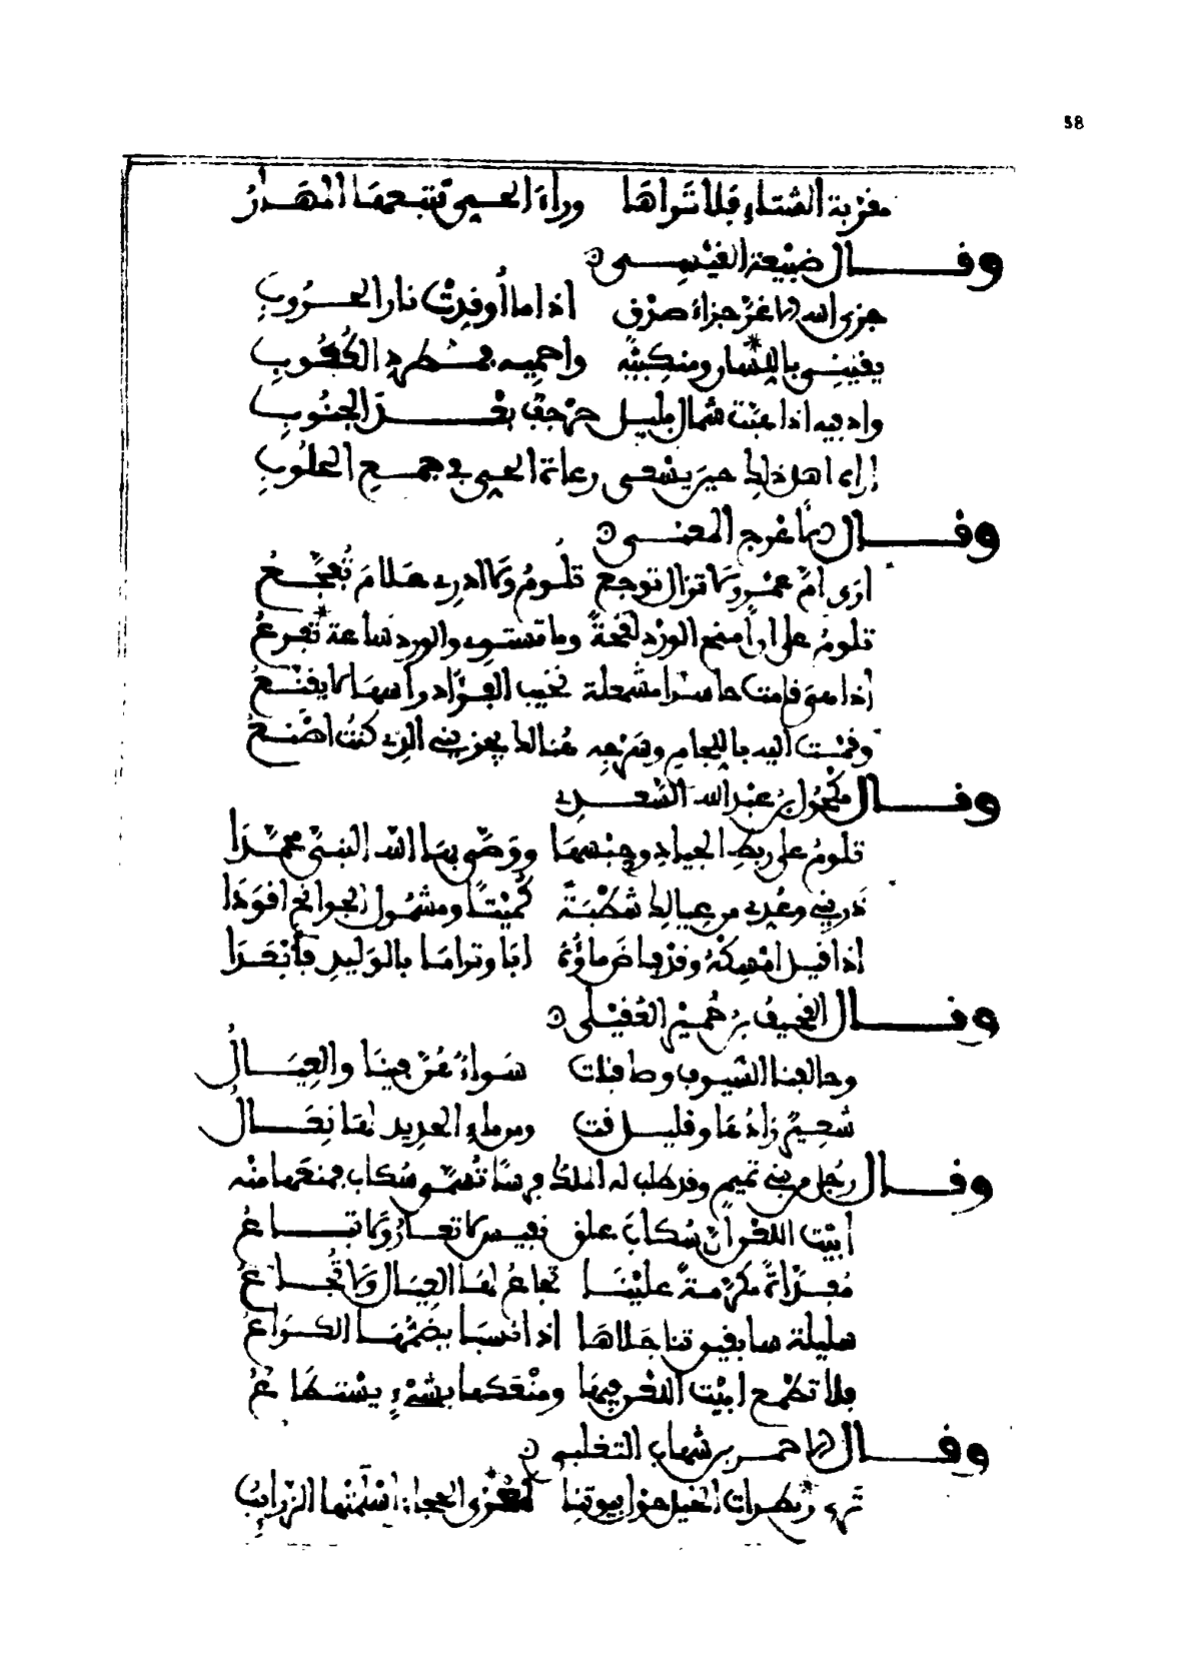 58
مقربة الشتاء فلا تراها وراء الحي تتبعها المهار
وقال ضبيعة القيسي
جزى الله الاغر جزاء صدق اذا ما أوقدت نار الحروب
يقيني باللبان ومنكبيه واحميه بمطرد الكعوب
وادفيه اذا هبت شمال بليل حرجف بعد الجنوب
اراه اهل ذلك حين يسعى رعاة الحي في جمع الحلوب
وقال الاعرج المعني
ارى ام عمرو لا تزال توجع تلوم وما ادري علام تفجع
تلوم على ان امنح الورد لقحة وما تستوي والورد ساعة تفزع
اذا هي قامت حاسرا مشمعلة نخيب الفؤاد رأسها ما يقنع
وقمت اليه باللجام ميسرا هنالك يجزيني الذي كنت اصنع
وقال مكحول بن عبد الله السعدي
تلوم على ربط الجياد وحبسها ووصى بها الله النبي محمدا
ذريني وعدي من عيالك شطبة كميتا ومشمول الجوانح اقودا
اذا قيل امسكه وقد فاض ماؤه ابا وتراما بالوليد فأبعدا
وقال القحيف بن حمير العقيلي
وحالفنا السيوف وصافنات سواء هن فينا والعيال
شعير زادها وقليل قت ومن ماء الحديد لها نعال
وقال رجل من بني تميم وقد طلب له الملك فرسا تسمى سكاب فمنعها منه
ابيت اللعن ان سكاب علق نفيس لا تعار ولا تباع
مفداة مكرمة علينا تجاع لها العيال ولا تجاع
سليلة سابقين تناجلاها اذا نسبا يضمهما الكراع
فلا تطمع ابيت اللعن فيها ومنعكها بشيء يستطاع
وقال الاخنس بن شهاب التغلبي
ترى رائدات الخيل حول بيوتنا كمعزى الحجاز اسلمتها الزرائب